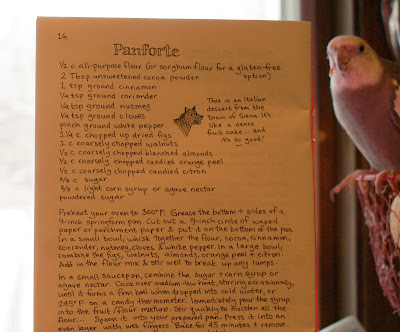 16
Panforte
1/2 c all-purpose flour (or sorghum flour for a gluten-free option)
2 Tbsp unsweetened cocoa powder
1 tsp ground cinnamon
1/4 tsp ground coriander
1/4 tsp ground nutmeg
1/4 tsp ground cloves
pinch ground white pepper
1 1/4 c chopped up dried figs
1 c coarsely chopped walnuts
1/2 c coarsely chopped blanched almonds
1/2 c coarsely chopped candied orange peel
1/2 c coarsely chopped candied citron
sugar
light corn syrup or agave nectar
powdered sugar
This is an Italian
dessert from the
town of Siena. It's
like a dense
fruit cake... and
it's so good!
Preheat your oven to 300°F. Grease the bottom + sides of a
9-inch springform pan. Cut out a 9-inch circle of waxed
paper or parchment paper & put it on the bottom of the pan.
In a small bowl, whisk together the flour, cocoa, cinnamon,
corriander, nutmeg, cloves & white pepper. In a large bowl
combine the figs, walnuts, almonds, orange peel + citron.
Add in the flour mix & stir well to break up any lumps.
In a small saucepan, combine the sugar + corn syrup or
agave nectar. Cook over medium-low heat, stirring occasionally,
until it forms a firm ball when dropped into cold water, or
245°F on a candy thermometer. Immediately pour the syrup
into the fruit/flour mixture. Stir quickly to moisten all the
flour... Spoon it into your prepared pan. Press it into an
even layer with wet fingers. Bake for 45 minutes + remove